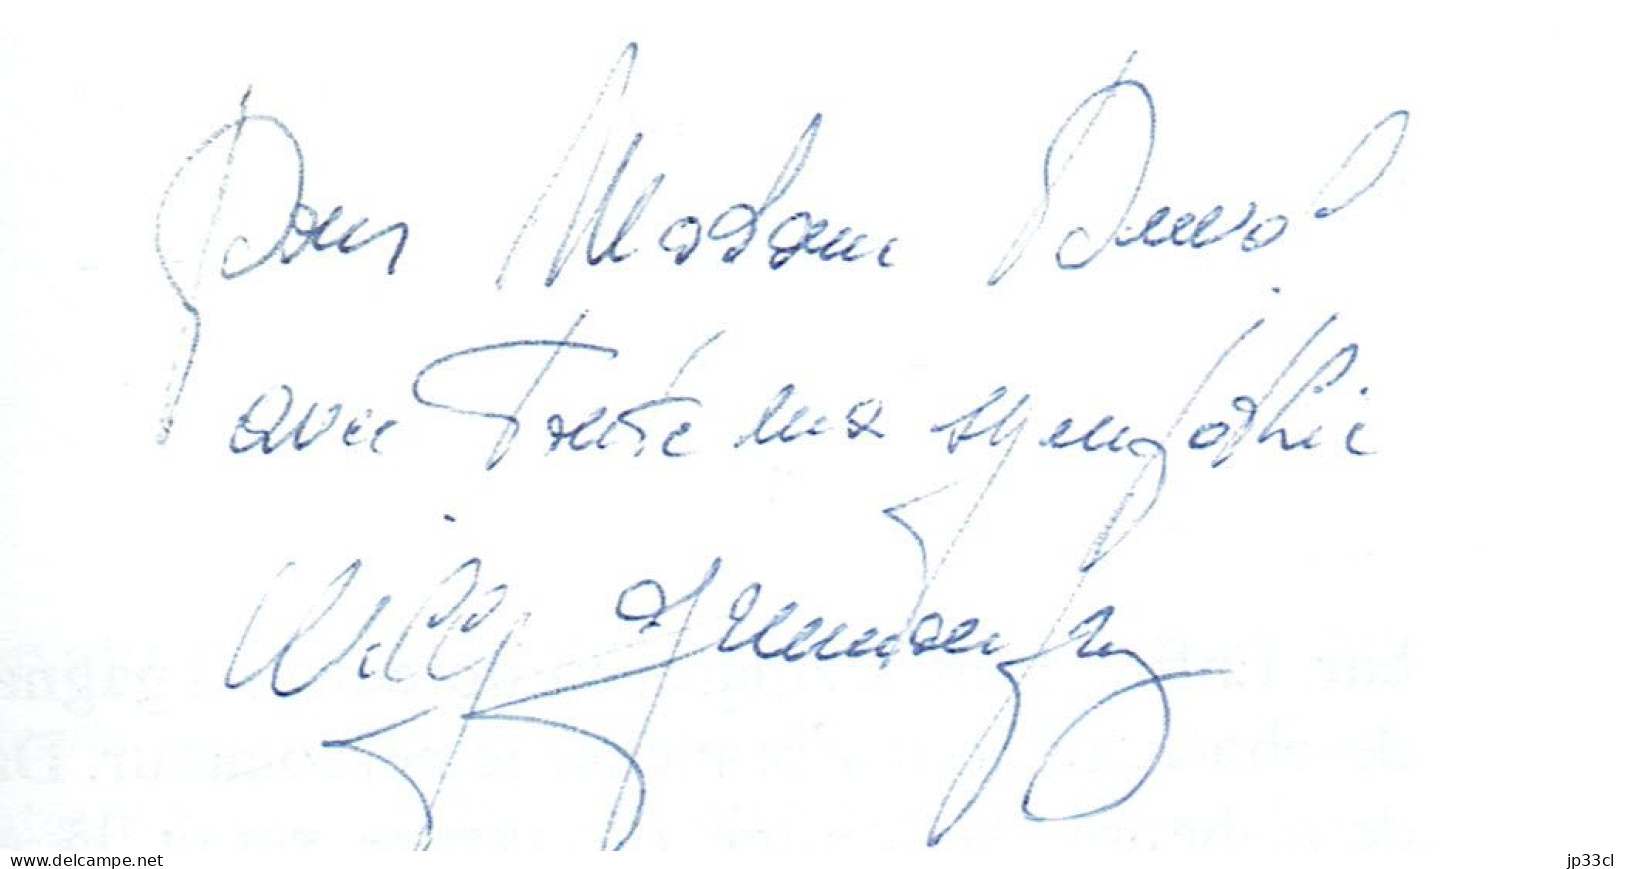 Pour Madame Duval
avec toute ma sympathie
Willy
www.delcampe.net
jp33cl